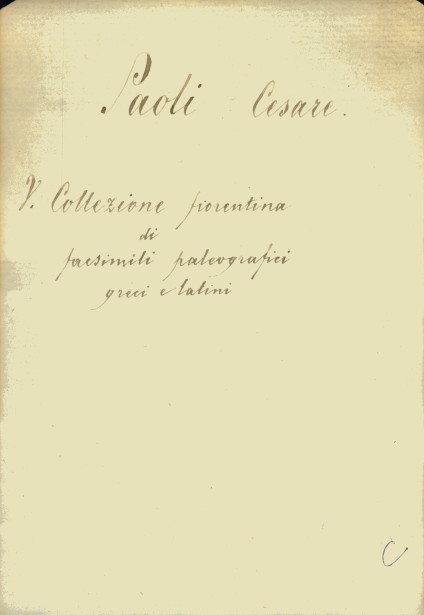 Paoli Cesare.
V. Collezione fiorentina
di
facsimili paleografici
greci e latini
C